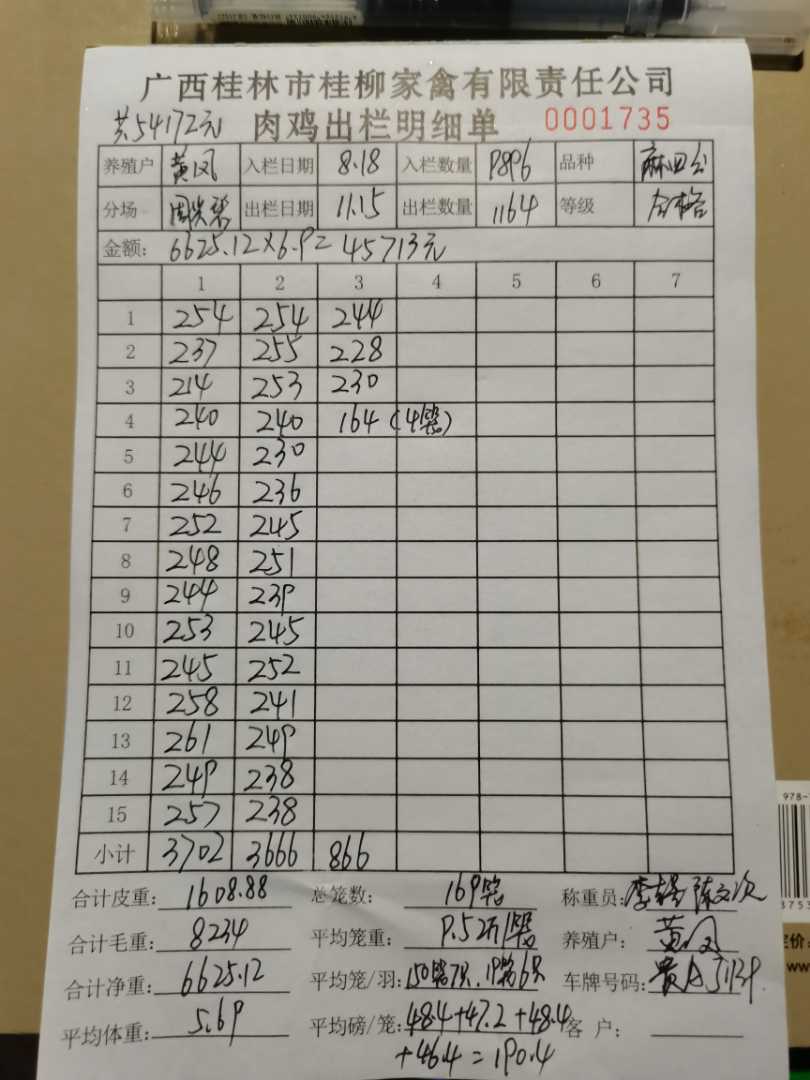 广西桂林市桂柳家禽有限责任公司
共54172元 肉鸡出栏明细单 0001735
养殖户 黄凤 入栏日期 8.18 入栏数量 9896 品种 麻田公
分场 出栏日期 11.15 出栏数量 1164 等级 合格
金额: 6625.12×6.9=45713元
1 2 3 4 5 6 7
1 254 254 244
2 237 255 228
3 214 253 230
4 240 240 164 (4笼)
5 244 230
6 246 236
7 252 245
8 248 251
9 244 239
10 253 245
11 245 252
12 258 241
13 261 249
14 249 238
15 257 238
小计 3702 3666 866
合计皮重: 1608.88 总笼数: 169笼 称重员:
合计毛重: 8234 平均笼重: 9.52斤/笼 养殖户: 黄凤
合计净重: 6625.12 平均笼/羽: 150笼7只.19笼6只 车牌号码:
平均体重: 5.69 平均磅/笼: 48.4+47.2+48.4 客户:
+46.4=190.4
978-
定价:
www